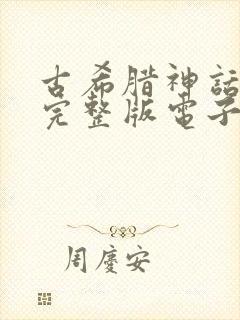 古希腊神話
完整版電子
周慶安